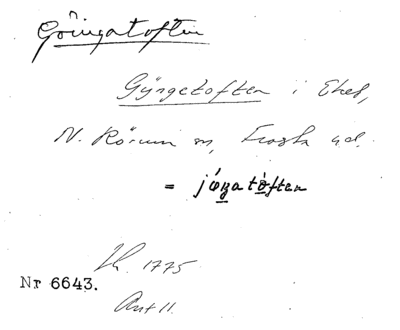 Göingatoften
Gyngetoften i
N. Rörum sn, Frosta hd.
= jöṉatòften
1775
Nr 6643.
Ant 11.